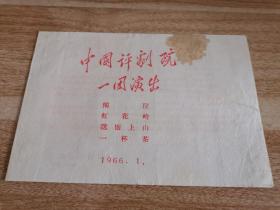 中国评剧院
一团演出
阅江
红花岭
送货上山
一杯茶
1966.1.